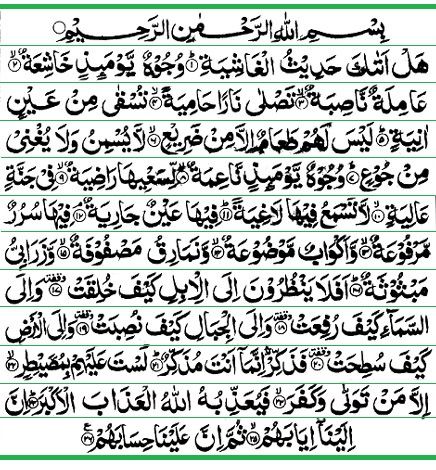 بِسْمِ اللهِ الرَّحْمٰنِ الرَّحِيْمِ
هَلْ اَتٰىكَ حَدِيْثُ الْغَاشِيَةِ ۝١ وُجُوْهٌ يَّوْمَىِٕذٍ خَاشِعَةٌ ۝٢
عَامِلَةٌ نَّاصِبَةٌ ۝٣ تَصْلٰى نَارًا حَامِيَةً ۝٤ تُسْقٰى مِنْ عَيْنٍ
اٰنِيَةٍ ۝٥ لَيْسَ لَهُمْ طَعَامٌ اِلَّا مِنْ ضَرِيْعٍ ۝٦ لَّا يُسْمِنُ وَلَا يُغْنِيْ
مِنْ جُوْعٍ ۝٧ وُجُوْهٌ يَّوْمَىِٕذٍ نَّاعِمَةٌ ۝٨ لِّسَعْيِهَا رَاضِيَةٌ ۝٩ فِيْ جَنَّةٍ
عَالِيَةٍ ۝١٠ لَّا تَسْمَعُ فِيْهَا لَاغِيَةً ۝١١ فِيْهَا عَيْنٌ جَارِيَةٌ ۝١٢ فِيْهَا سُرُرٌ
مَّرْفُوْعَةٌ ۝١٣ وَّاَكْوَابٌ مَّوْضُوْعَةٌ ۝١٤ وَّنَمَارِقُ مَصْفُوْفَةٌ ۝١٥ وَّزَرَابِيُّ
مَبْثُوْثَةٌ ۝١٦ اَفَلَا يَنْظُرُوْنَ اِلَى الْاِبِلِ كَيْفَ خُلِقَتْ ۝١٧ وَاِلَى
السَّمَآءِ كَيْفَ رُفِعَتْ ۝١٨ وَاِلَى الْجِبَالِ كَيْفَ نُصِبَتْ ۝١٩ وَاِلَى الْاَرْضِ
كَيْفَ سُطِحَتْ ۝٢٠ فَذَكِّرْ اِنَّمَآ اَنْتَ مُذَكِّرٌ ۝٢١ لَسْتَ عَلَيْهِمْ بِمُصَيْطِرٍ ۝٢٢
اِلَّا مَنْ تَوَلّٰى وَكَفَرَ ۝٢٣ فَيُعَذِّبُهُ اللهُ الْعَذَابَ الْاَكْبَرَ ۝٢٤ اِنَّ
اِلَيْنَآ اِيَابَهُمْ ۝٢٥ ثُمَّ اِنَّ عَلَيْنَا حِسَابَهُمْ ۝٢٦